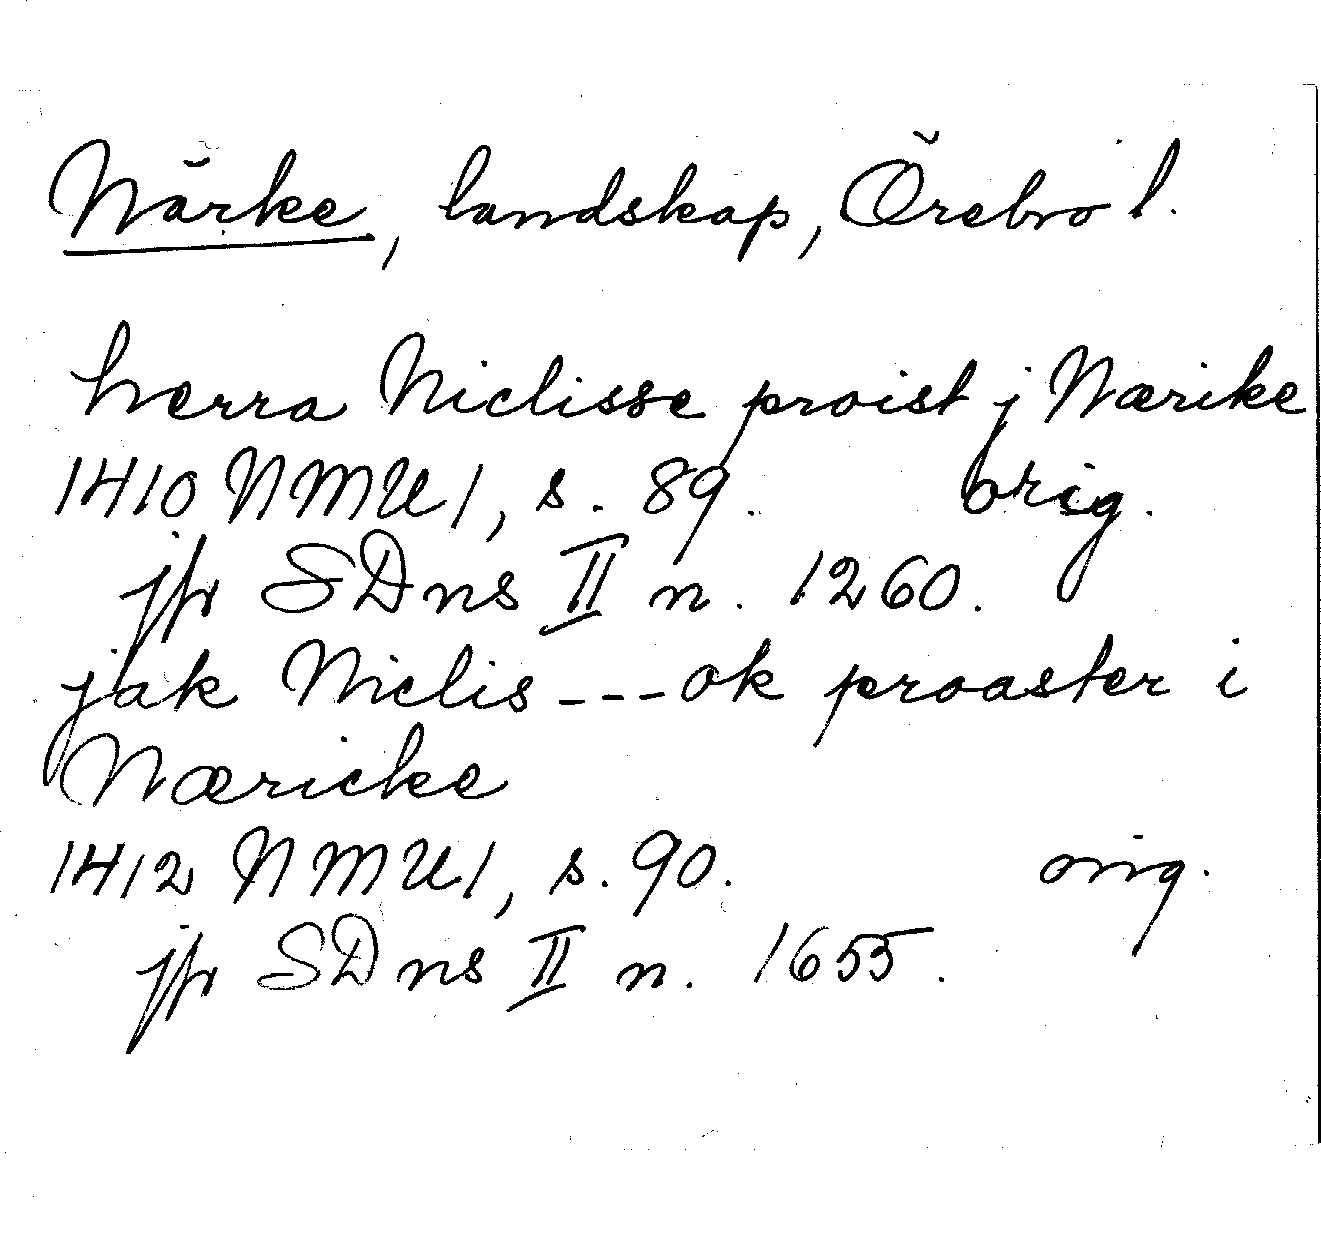 Närke, landskap, Örebro l.
herra Niclisse proist j Nærike
1410 NMU 1, s. 89. orig.
jfr SDns II n. 1260.
jak Niclis --- ok proaster i
Næricke
1412 NMU 1, s. 90. orig.
jfr SDns II n. 1655.